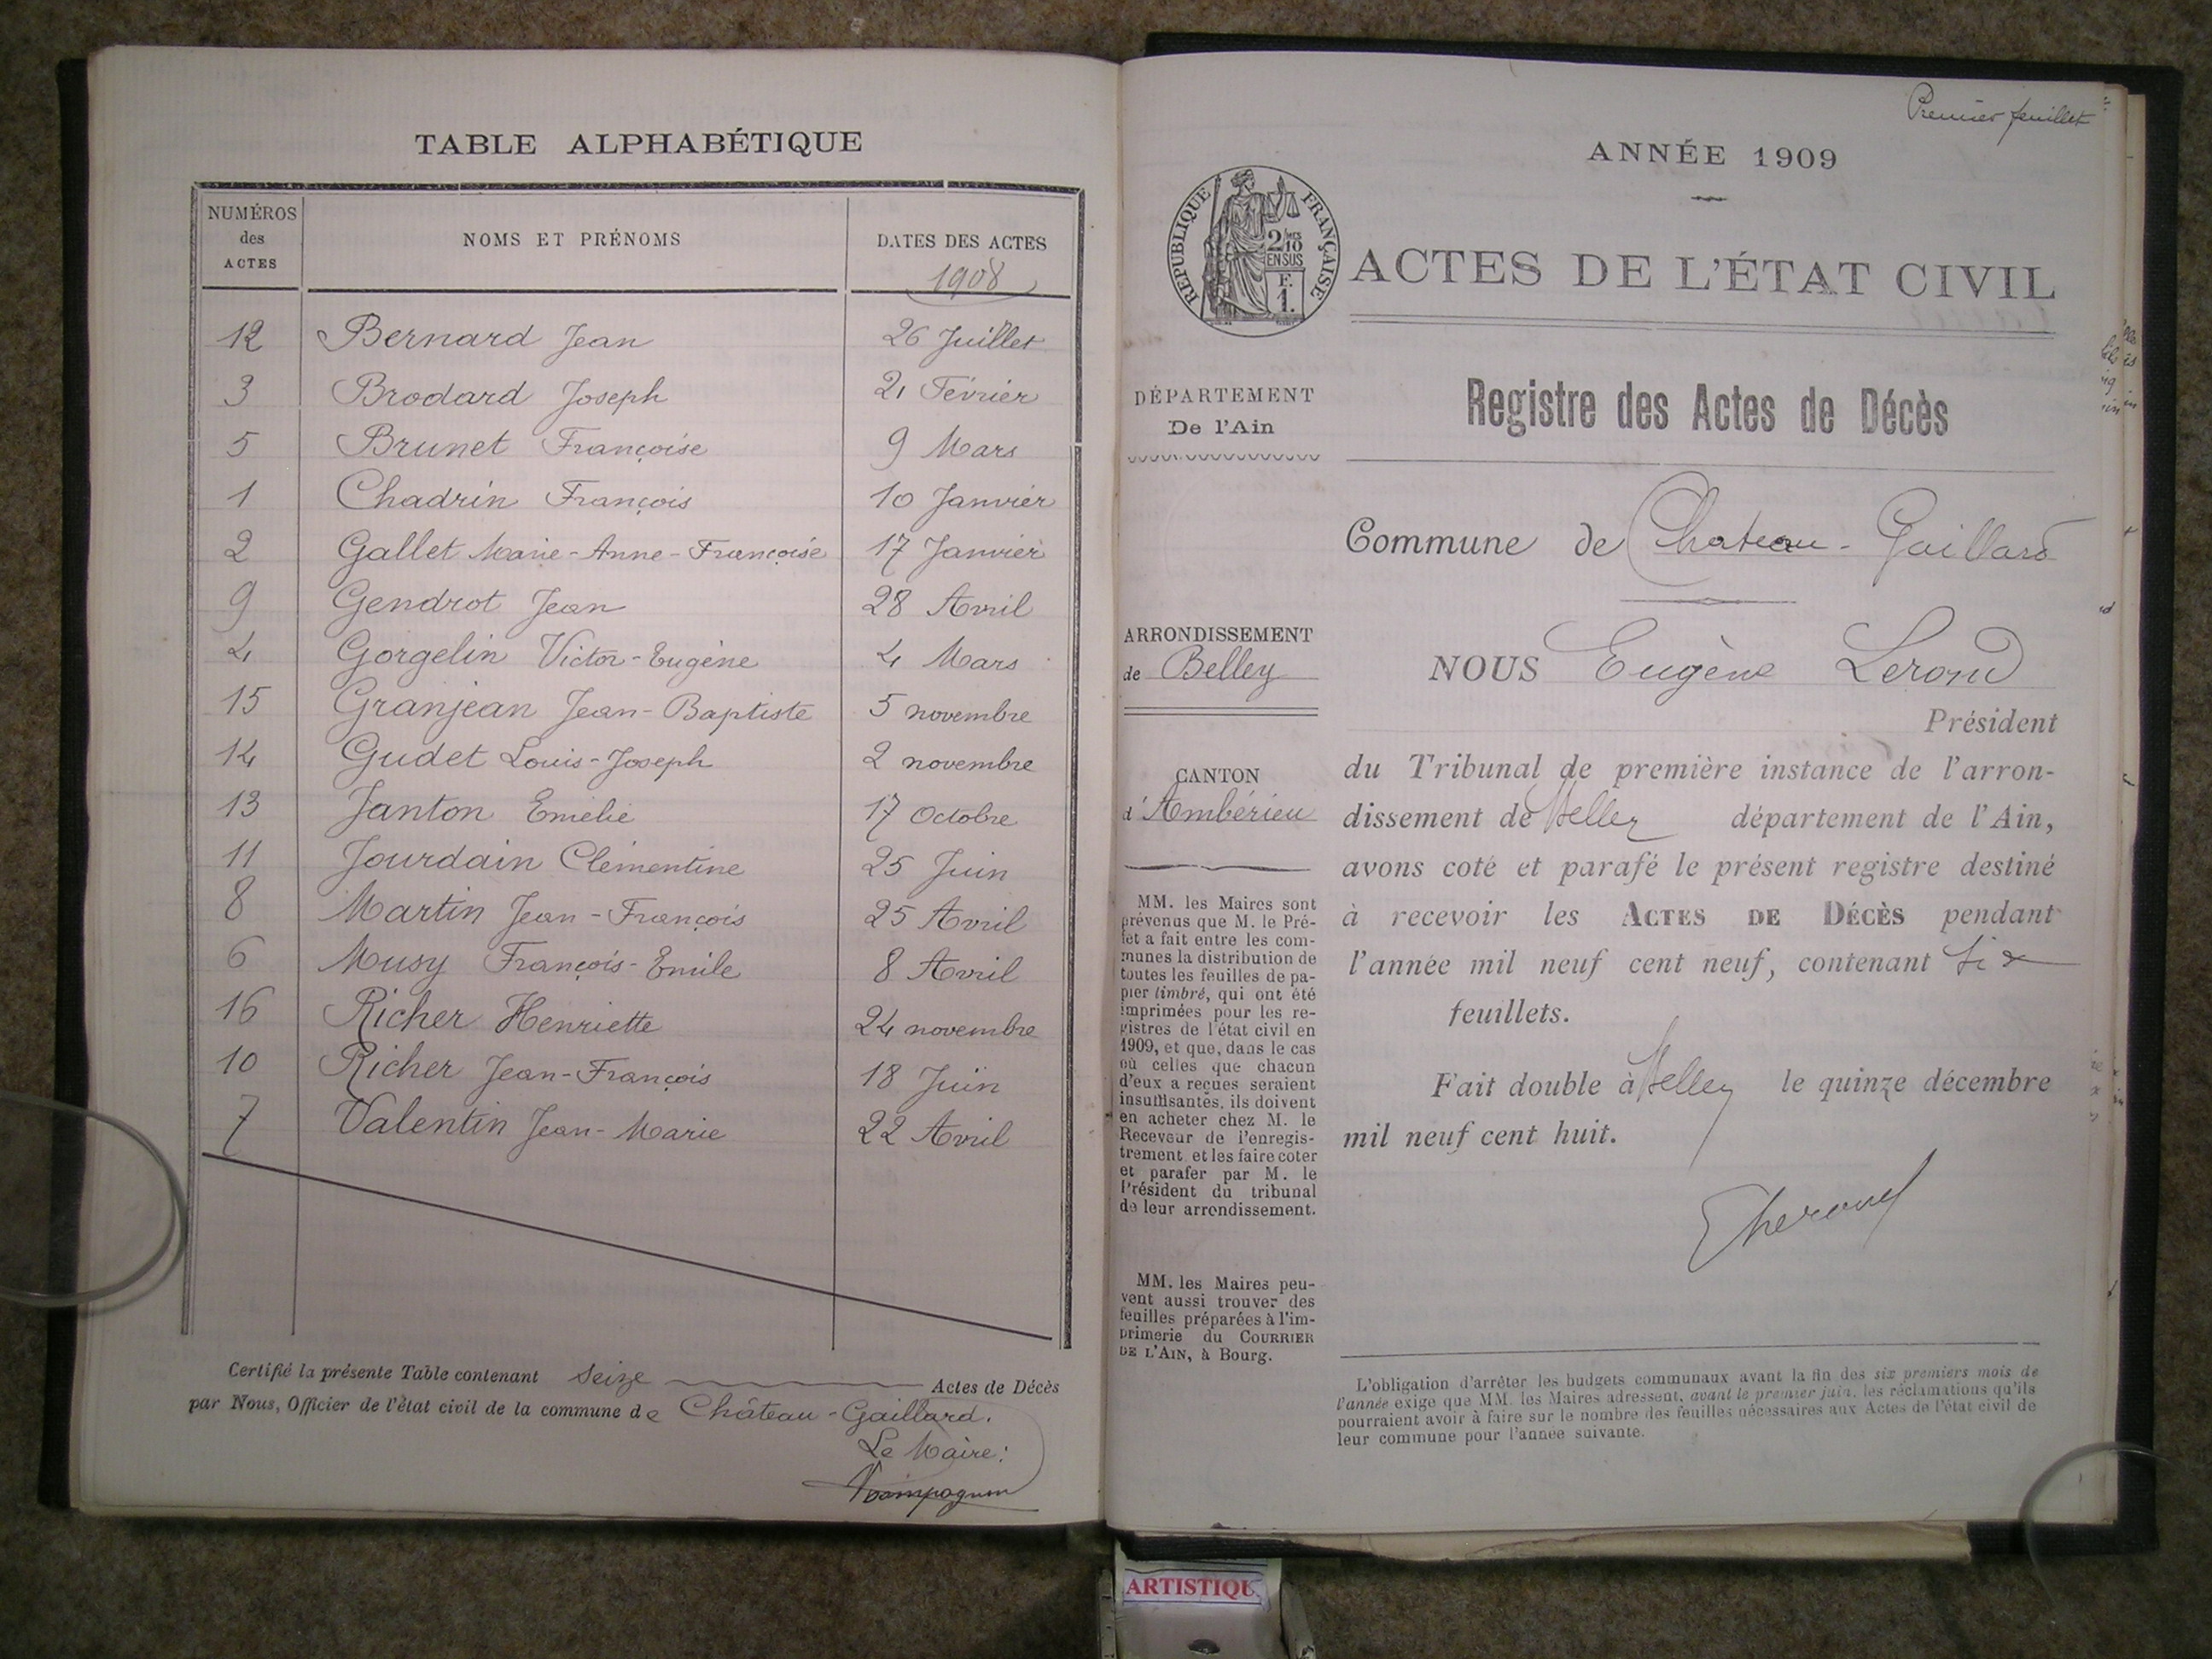 TABLE ALPHABÉTIQUE
NUMÉROS des ACTES NOMS ET PRÉNOMS DATES DES ACTES
1908
12 Bernard Jean 26 Juillet
3 Brodard Joseph 21 Février
5 Brunet Françoise 9 Mars
1 Chadrin François 10 Janvier
2 Gallet Marie-Anne-Françoise 17 Janvier
9 Gendrot Jean 28 Avril
4 Gorgelin Victor-Eugène 4 Mars
15 Granjean Jean-Baptiste 5 novembre
14 Gudet Louis-Joseph 2 novembre
13 Janton Emélie 17 Octobre
11 Jourdain Clémentine 25 Juin
8 Martin Jean-François 25 Avril
6 Musy François-Emile 8 Avril
16 Richer Henriette 24 novembre
10 Richer Jean-François 18 Juin
7 Valentin Jean-Marie 22 Avril
Certifié la présente Table contenant seize Actes de Décès
par Nous, Officier de l'état civil de la commune de Château-Gaillard.
Le Maire:
Premier feuillet
ANNÉE 1909
RÉPUBLIQUE FRANÇAISE
2/10
EN SUS
F.
1.
ACTES DE L'ÉTAT CIVIL
DÉPARTEMENT
De l'Ain
Registre des Actes de Décès
Commune de Chateau-Gaillard
ARRONDISSEMENT
de Belley
NOUS Eugène
Président
CANTON
d'Ambérieu
du Tribunal de première instance de l'arron-
dissement de Belley département de l'Ain,
avons coté et parafé le présent registre destiné
à recevoir les ACTES DE DÉCÈS pendant
l'année mil neuf cent neuf, contenant six
feuillets.
Fait double à Belley le quinze décembre
mil neuf cent huit.
MM. les Maires sont
prévenus que M. le Pré-
fet a fait entre les com-
munes la distribution de
toutes les feuilles de pa-
pier timbré, qui ont été
imprimées pour les re-
gistres de l'état civil en
1909, et que, dans le cas
où celles que chacun
d'eux a reçues seraient
insuffisantes, ils doivent
en acheter chez M. le
Receveur de l'enregis-
trement et les faire coter
et parafer par M. le
Président du tribunal
de leur arrondissement.
MM. les Maires peu-
vent aussi trouver des
feuilles préparées à l'im-
primerie du COURRIER
DE L'AIN, à Bourg.
L'obligation d'arrêter les budgets communaux avant la fin des six premiers mois de
l'année exige que MM. les Maires adressent, avant le premier juin, les réclamations qu'ils
pourraient avoir à faire sur le nombre des feuilles nécessaires aux Actes de l'état civil de
leur commune pour l'année suivante.
ARTISTIQU